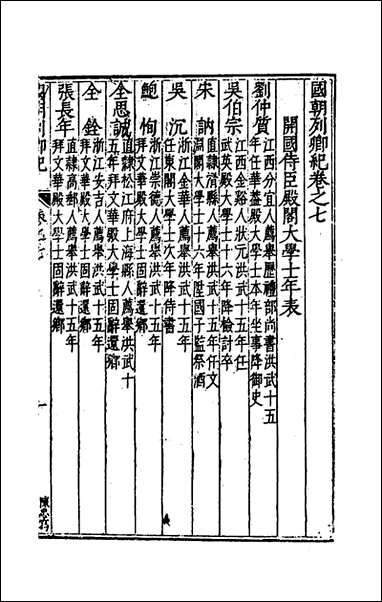 國朝列卿紀卷之七
開國侍臣殿閣大學士年表
劉仲質
江西分宜人薦舉歷禮部尚書洪武十五
年任華蓋殿大學士本年坐事降御史
吳伯宗
江西金谿人狀元洪武十五年任
武英殿大學士十六年降檢討卒
朱訥
直隸滑縣人薦舉洪武十五年任文
淵閣大學士十六年陞國子監祭酒
吳沉
浙江金華人薦舉洪武十五年
任東閣大學士久年降侍書
鮑恂
浙江崇德人薦舉洪武十五年
拜文華殿大學士固辭還鄉
全思誠
直隸松江府上海縣人薦舉洪武十
五年拜文華殿大學士固辭還鄉
全銓
浙江安吉人薦舉洪武十五年
拜文華殿大學士固辭還鄉
張長年
直隸高郵人薦舉洪武十五年
拜文華殿大學士固辭還鄉
國朝列卿紀
卷之七
一